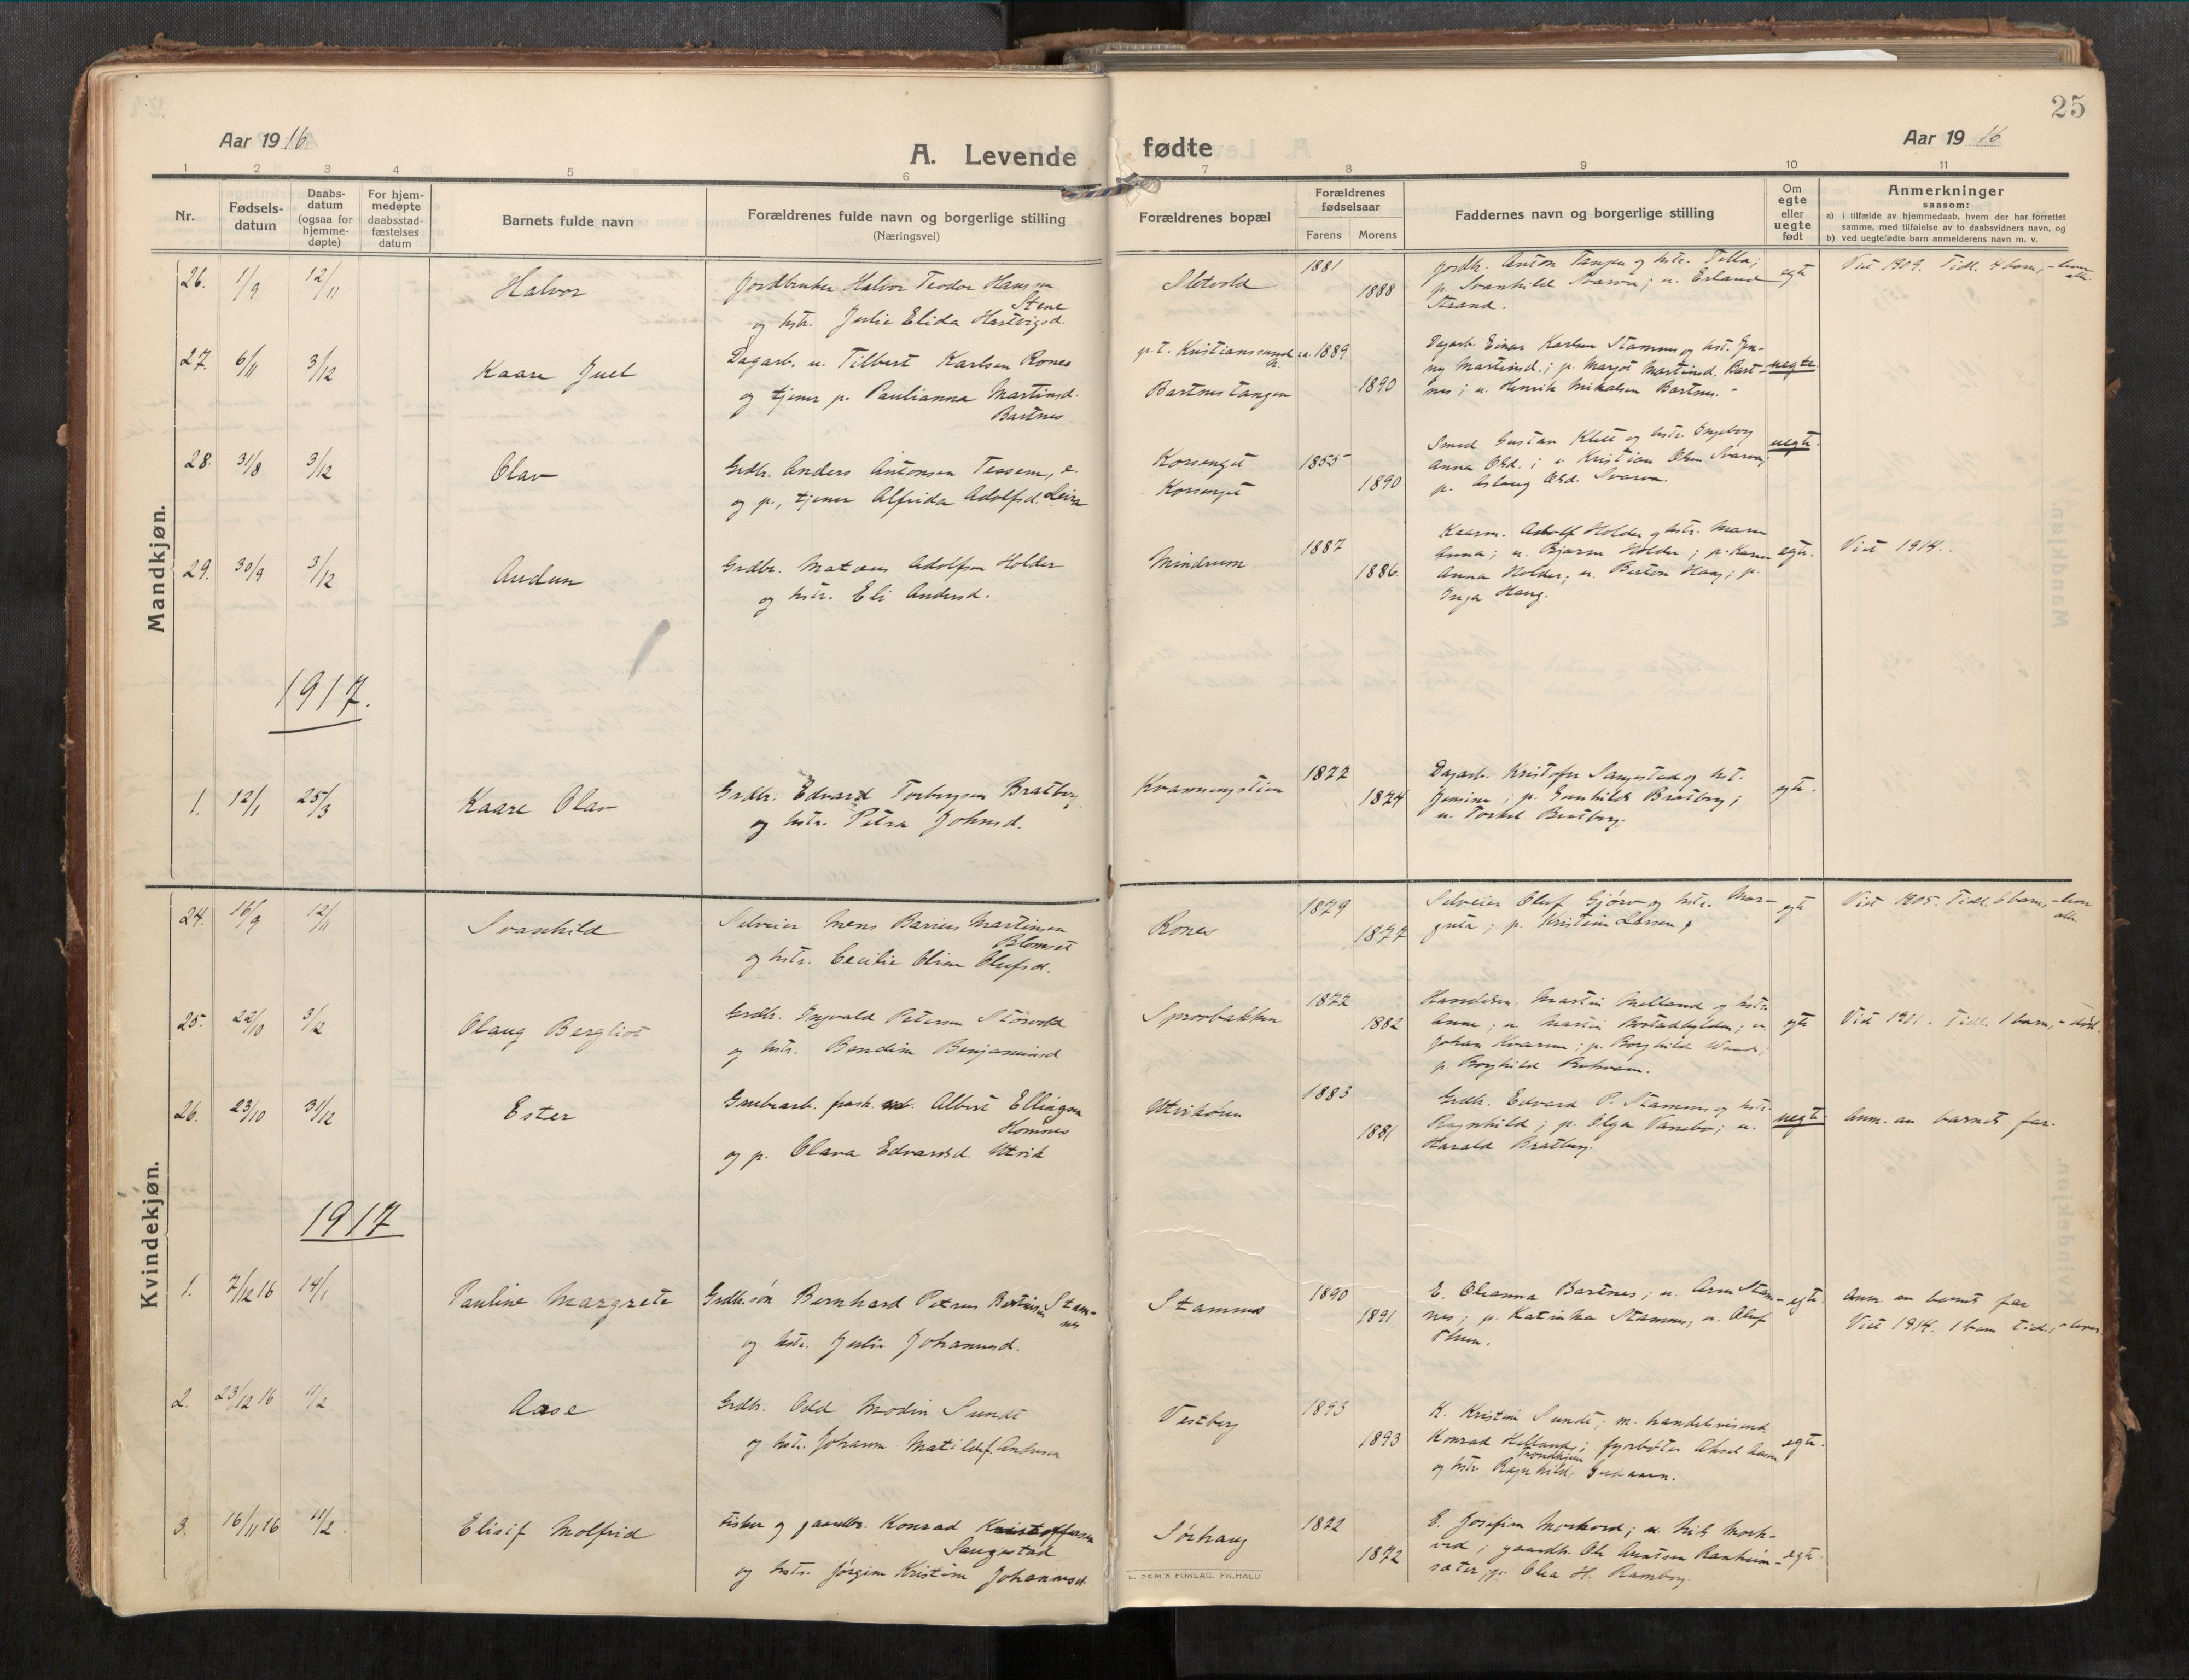 25
Aar 1916
A. Levende fødte
Aar 1916
1 2 3 4 5 6 7 8 9 10 11
Nr.
Fødsels-
datum
Daabs-
datum
(ogsaa for
hjemme-
døpte)
For hjem-
medøpte
daabsstad-
fæstelses
datum
Barnets fulde navn
Forældrenes fulde navn og borgerlige stilling
(Næringsvei)
Forældrenes bopæl
Forældrenes
fødselsaar
Farens Morens
Faddernes navn og borgerlige stilling
Om
egte
eller
uegte
født
Anmerkninger
saasom:
a) i tilfælde av hjemmedaab, hvem der har forrettet
samme, med tilføielse av to daabsvidners navn, og
b) ved uegtefødte barn anmelderens navn m. v.
Mandkjøn.
26. 1/9 12/11 Halvor
Jordbruker Halvor Teodor Hansen
Stene
og hstr. Julie Elida Hartvigsd.
Sletvold 1881
1888
Jordbr. Anton Tangen og hstr. Tilla;
p. Svanhild Svarva; u. Erland
Strand.
egte
Viet 1909. Tidl. 4 barn, - lever
alle.
27. 6/11 3/12 Kaare Juel
Dagarb. u. Tilbert Karlsen Rones
og tjener p. Paulianna Martinsd.
Bartnes
p.t. Kristianssund N. ca. 1889
Bartnestangen 1890
Dagarb. Einar Karlsen Stamnes og hst. Jen-
ny Martinsd.; p. Margot Martinsd. Bart-
nes; u. Henrik Mikalsen Bartnes.
uegte
28. 31/8 3/12 Olav
Grdbr. Anders Antonsen Tessem, e.
og p., tjener Alfrida Adolfsd. Leira
Korsenget 1855
Korsenget 1890
Smed Gustav Klett og hstr. Ingeborg
Anna Olsd.; u. Kristian Olsen Svarva;
p. Aslaug Olsd. Svarva.
uegte.
29. 30/9 3/12 Audun
Grdbr. Mataeus Adolfsen Holder
og hstr. Eli Andersd.
Mindrum 1887
1886.
Kaarm. Adolf Holder og hstr. Maren
Anna; u. Bjarne Holder; p. Karen
Anna Holder; u. Berton Haug; p.
Inga Haug.
egte.
Viet 1914.
1917.
1. 12/1 25/3 Kaare Olav
Grdbr. Edvard Torbergsen Bratberg
og hstr. Petra Johnsd.
1877
1874
Dagarb. Kristofer Saugestad og hst.
Jensine; p. Gunhild Bratberg;
u. Torkel Bratberg.
egte.
Kvindekjøn.
24. 16/9 12/11 Svanhild
Selveier Mens Barius Martinsen
Blomset
og hstr. Cecilie Oline Olufsd.
Rones 1879
1877
Selveier Oluf Gjørv og hstr. Mar-
grete; p. Kristine Larsen;
egte
Viet 1905. Tidl. 6 barn, - lever
alle
25. 22/10 3/12 Olaug Bergliot
Grdbr. Ingvald Petersen Størvold
og hstr. Bendine Benjaminsd
Sprovbakken 1877
1882
Handelsm. Martin Melland og hstr.
Anna; u. Martin;
Johan Kvarme; p. Borghild;
p. Borghild
egte
Viet 1911. Tidl. 1 barn, - død.
26. 23/10 31/12 Ester
Grubearb. Albert Ellingsen
Homnes
og p. Olava Edvardsd. Utvik
1883
1881
Grdbr. Edvard P. Stamnes og hstr.
Ragnhild; p. Olga Vanebo; u.
Harald Bratberg.
uegte
Anm. av barnets far.
1917
1. 7/12 16 14/1 Pauline Margrete
Grdbr.søn Bernhard Petrus Stam-
nes
og hstr. Julie Johannesd.
Stamnes 1890
1891
E. Olianna Bartnes; u. Arne Stam-
nes; p. Katinka Stamnes, u. Oluf
egte.
Anm. av barnets far
Viet 1914. 1 barn tidl., - lever
2. 23/12 16 11/2 Aase
Grdbr. Odd Modin Sundt
og hstr. Johanna Matilde f. Andersen
Vestberg 1893
1893
K. Kristine Sundt; m. handelsreisende
Konrad; fyrbøter Aksel
Trondhjem
og hstr. Ragnhild
egte.
3. 16/11 16 11/2 Elisif Molfrid
Fisker og gaardbr. Konrad Kristoffersen
Saugestad
og hstr. Jørgine Kristine Johannesd.
Sørhaug 1872
E. Josefine Morkved; u. Nils Mork-
ved; gaardbr. Ole Arntsen Ranheim-
sæter; p. Olea H. Ramberg.
egte.
E. SEM'S FORLAG. FR.HALD